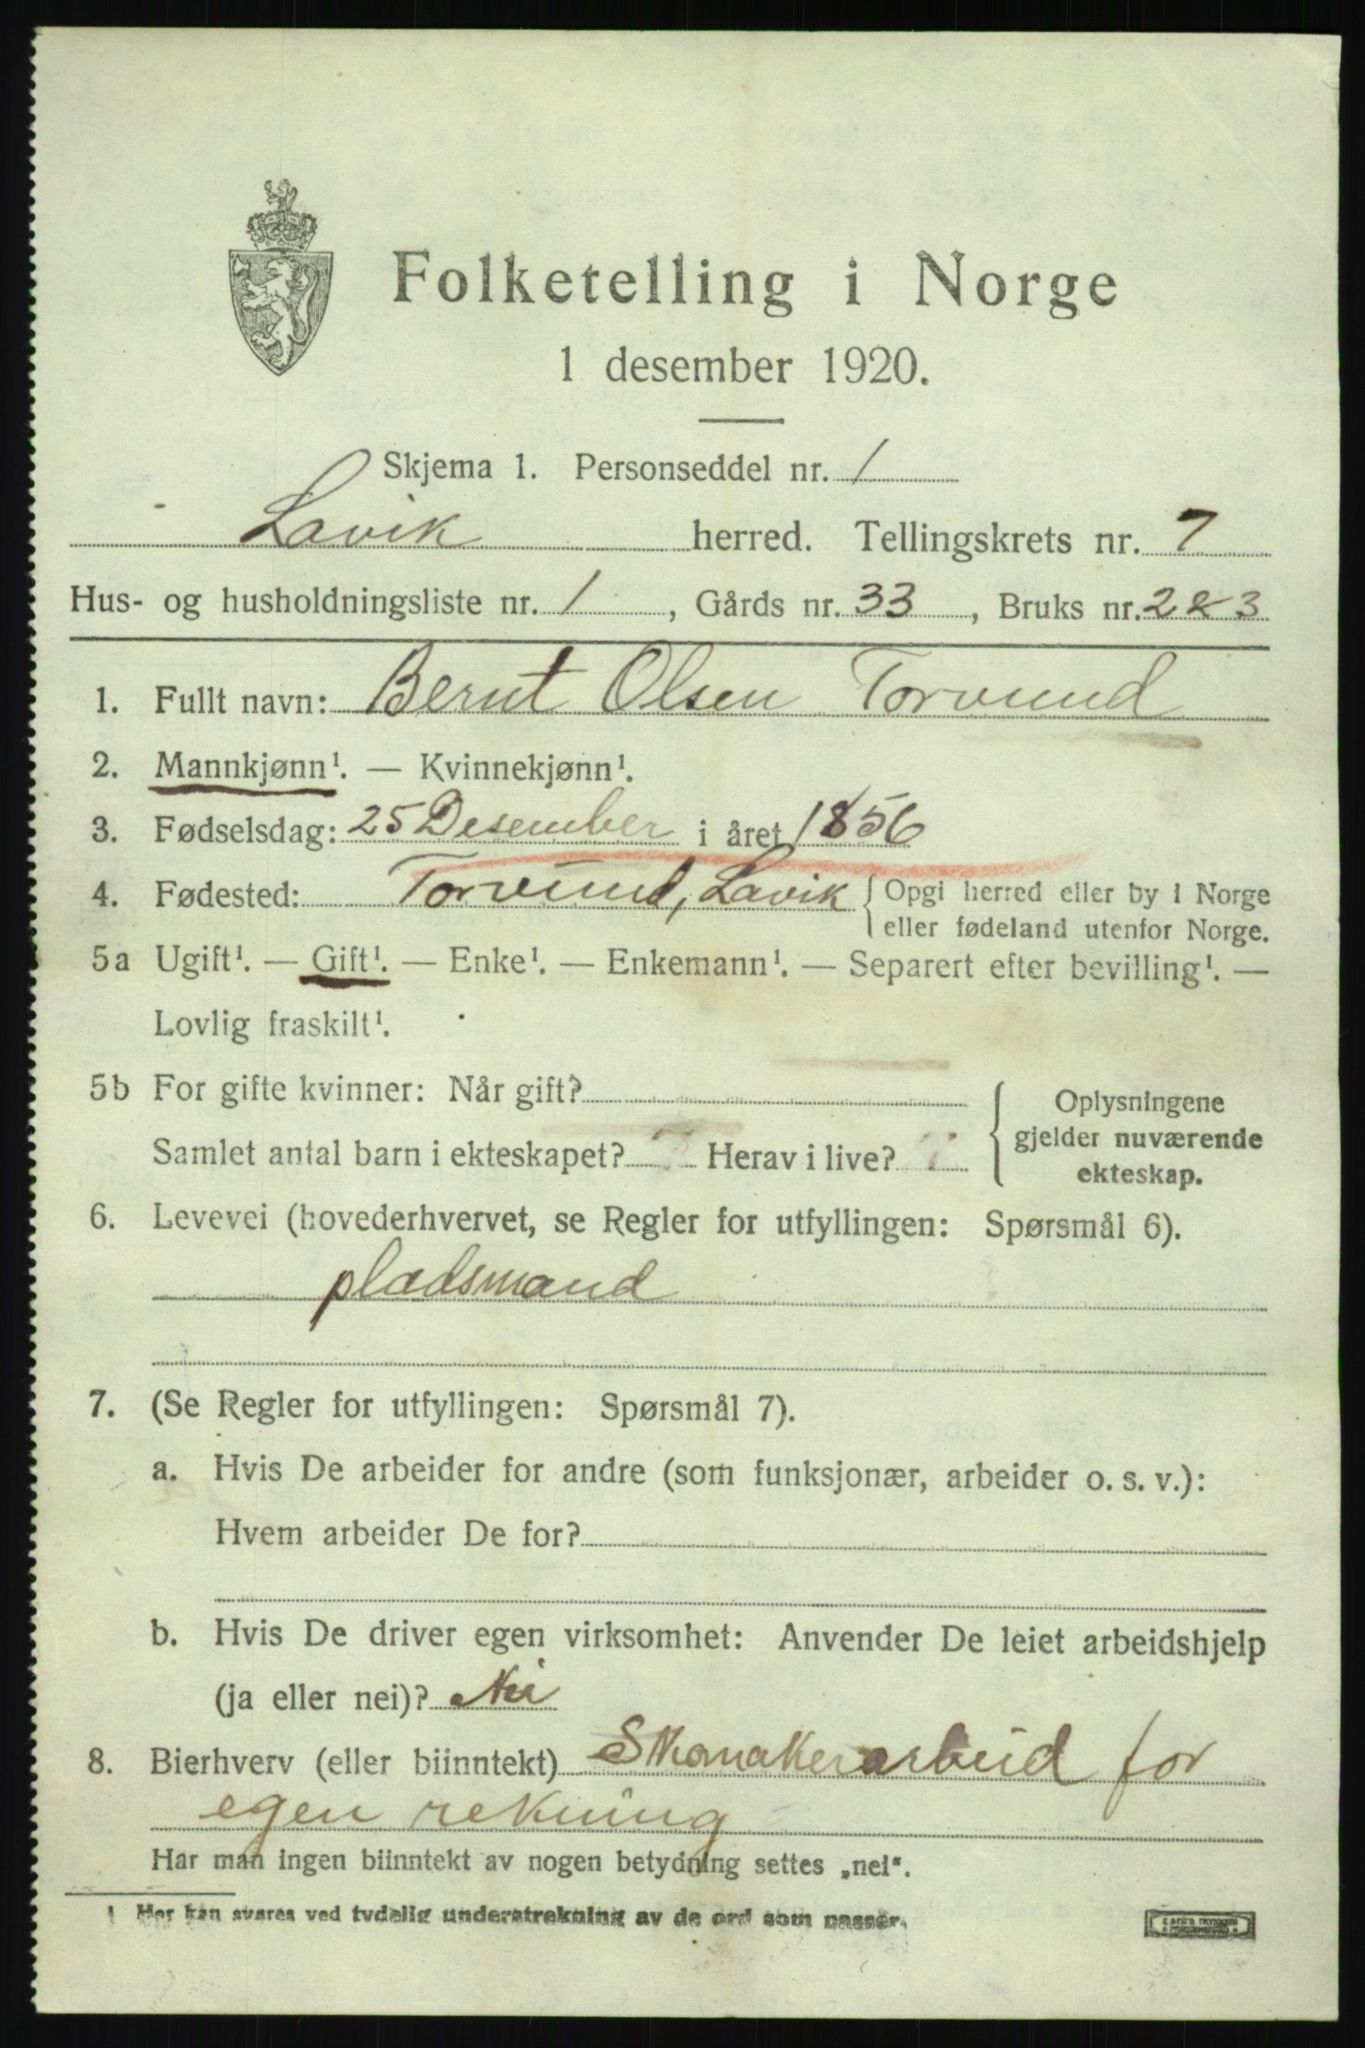 Folketelling i Norge
1 desember 1920.
Skjema 1. Personseddel nr. 1
Lavik herred. Tellingskrets nr. 7
Hus- og husholdningsliste nr. 1, Gårds nr. 33, Bruks nr. 2&3
1. Fullt navn: Bernt Olsen Torvund
2. Mannkjønn¹. — Kvinnekjønn¹.
3. Fødselsdag: 25 Desember i året 1856
4. Fødested: Torvund, Lavik { Opgi herred eller by i Norge
eller fødeland utenfor Norge.
5a Ugift¹. — Gift¹. — Enke¹. — Enkemann¹. — Separert efter bevilling¹. —
Lovlig fraskilt¹.
5b For gifte kvinner: Når gift?
Samlet antal barn i ekteskapet? 7 Herav i live? 7
{ Oplysningene
gjelder nuværende
ekteskap.
6. Levevei (hovederhvervet, se Regler for utfyllingen: Spørsmål 6).
pladsmand
7. (Se Regler for utfyllingen: Spørsmål 7).
a. Hvis De arbeider for andre (som funksjonær, arbeider o. s. v.):
Hvem arbeider De for?
b. Hvis De driver egen virksomhet: Anvender De leiet arbeidshjelp
(ja eller nei)? Nei
8. Bierhverv (eller biinntekt) Skomakerarbeid for
egen rekning
Har man ingen biinntekt av nogen betydning settes „nei“.
1 Her kan svares ved tydelig understrekning av de ord som passer.